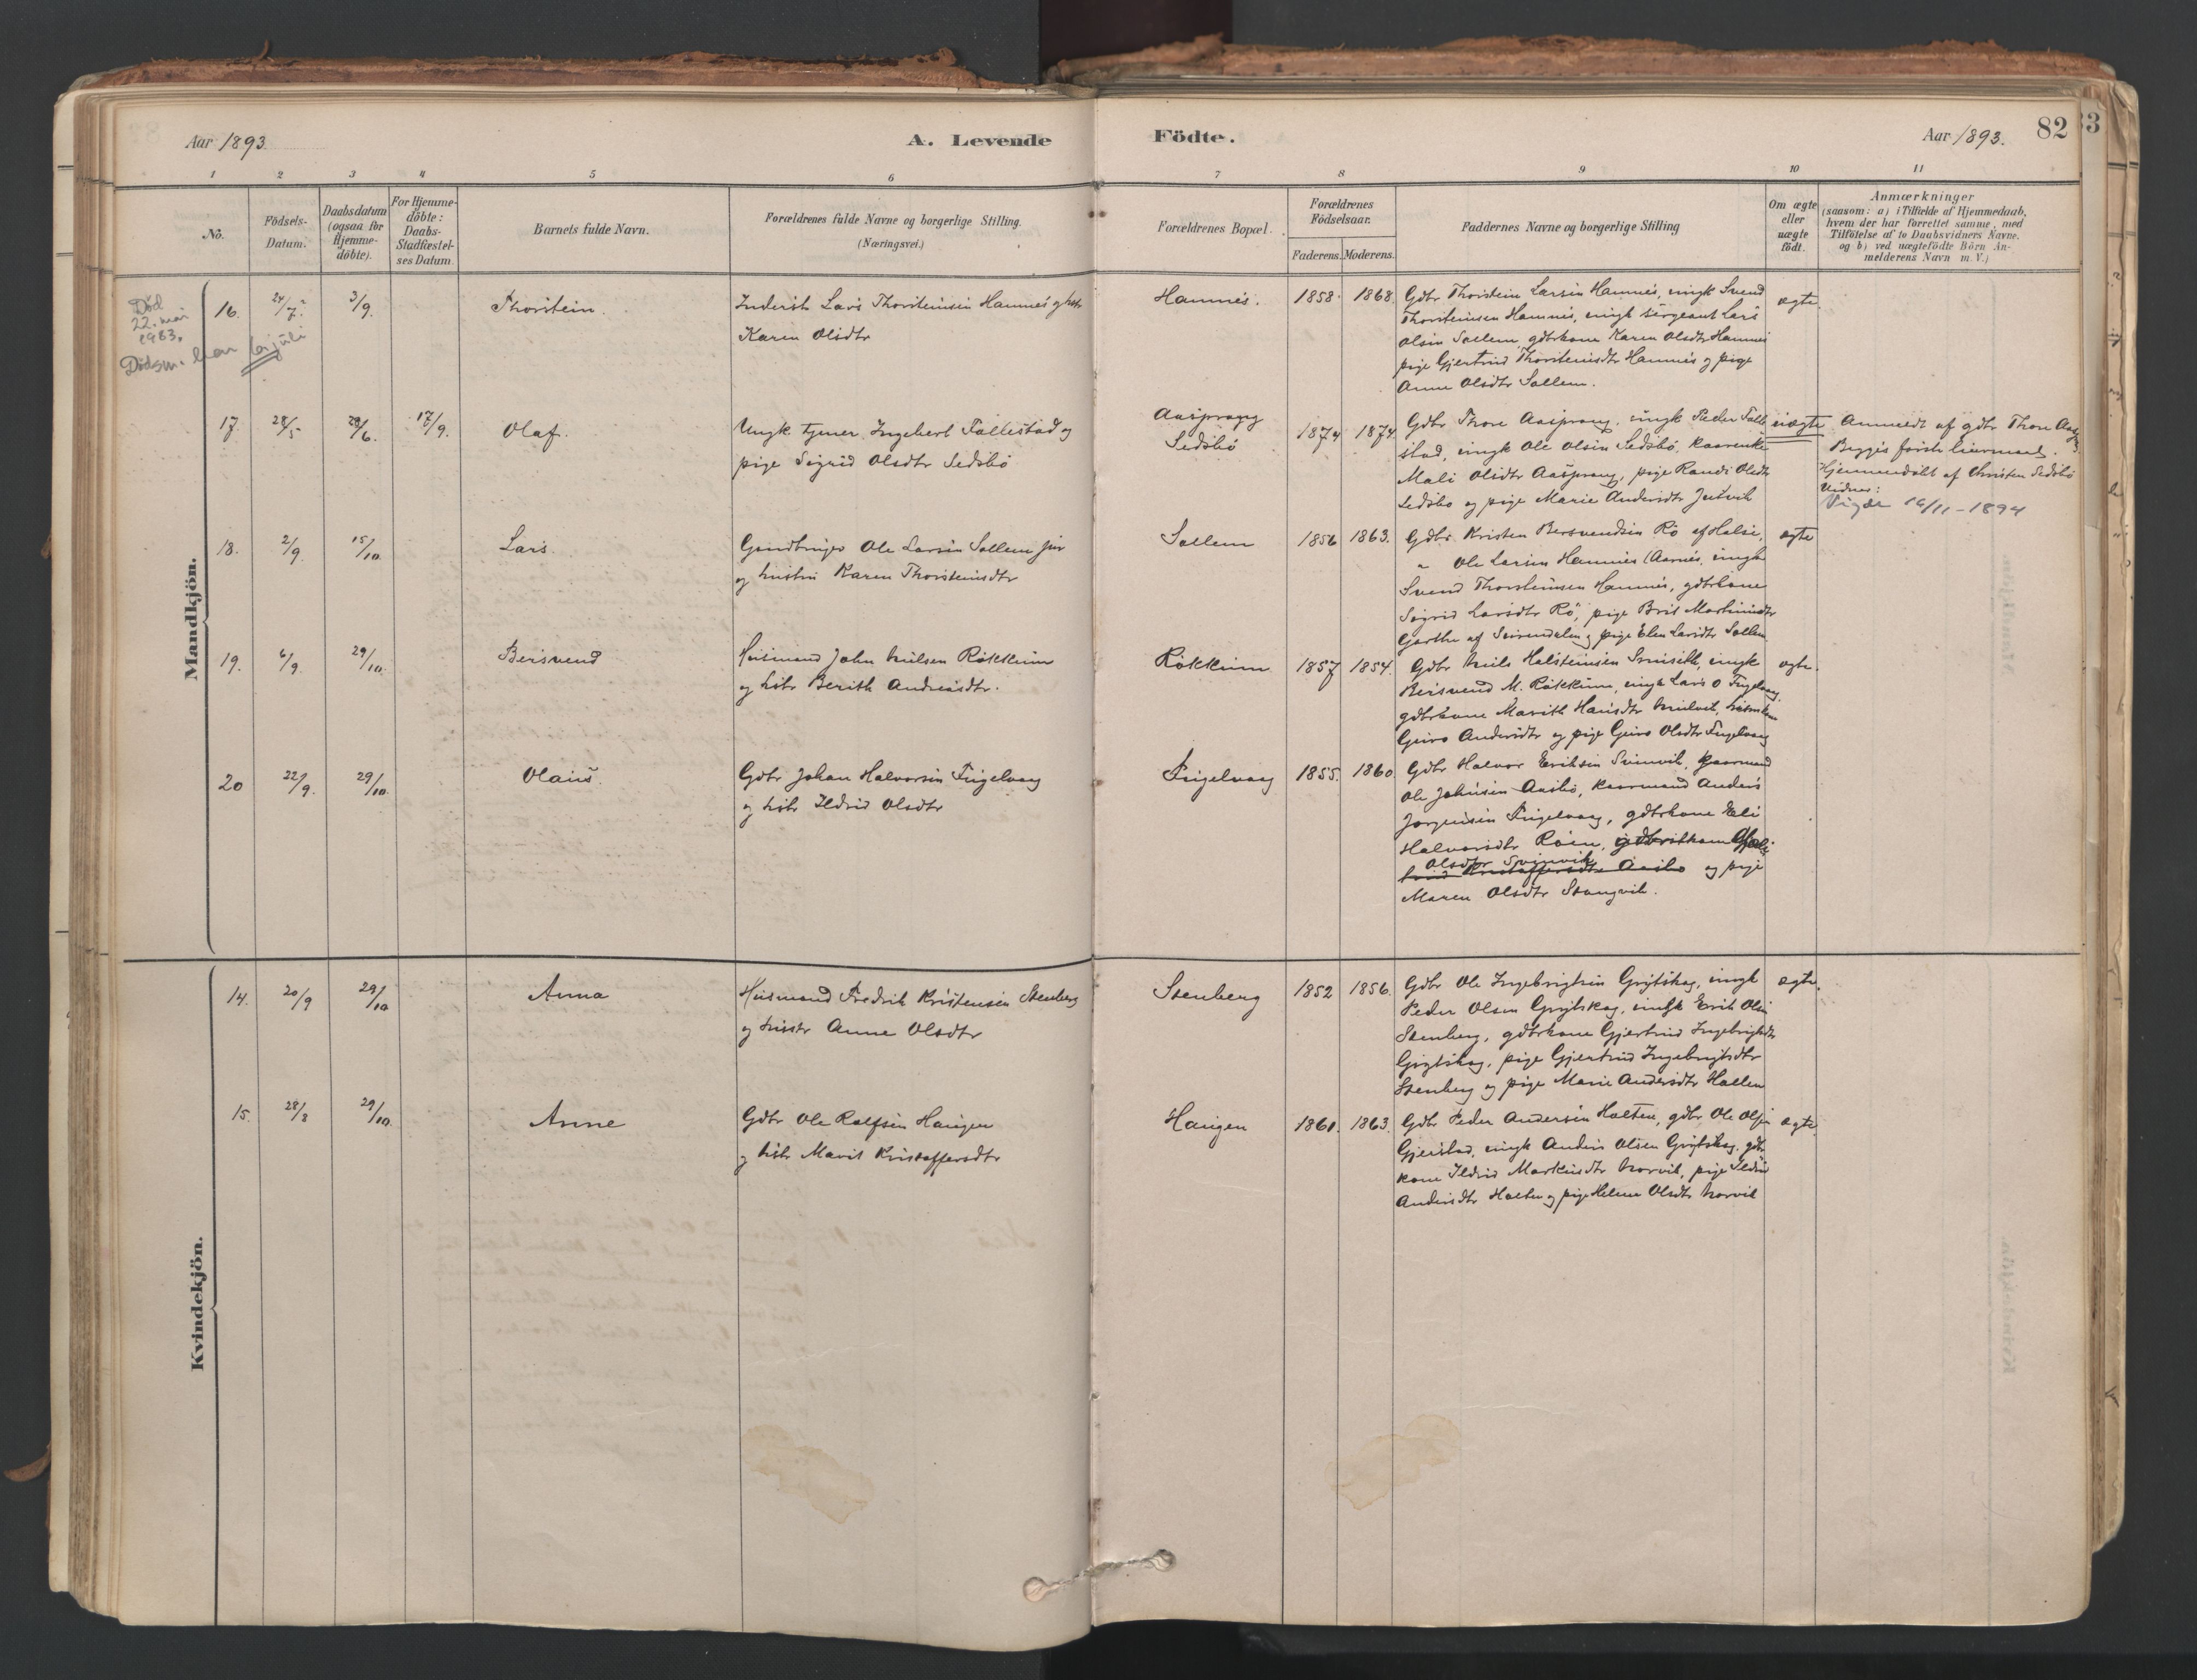 Aar 1893.
A. Levende
Födte.
Aar 1893.
82
33
1 2 3 4 5 6 7 8 9 10 11
No.
Födsels-
Datum.
Daabsdatum
(ogsaa for
Hjemme-
döbte).
For Hjemme-
döbte:
Daabs-
Stadfæstel-
ses Datum.
Barnets fulde Navn.
Forældrenes fulde Navne og borgerlige Stilling.
(Næringsvei.)
Forældrenes Bopæl.
Forældrenes
Födselsaar.
Faderens. Moderens.
Faddernes Navne og borgerlige Stilling
Om ægte
eller
uægte
födt.
Anmærkninger
(saasom: a) i Tilfælde af Hjemmedaab,
hvem der har forrettet samme, med
Tilföielse af to Daabsvidners Navne.
og b) ved uægtefödte Börn An-
melderens Navn m. V.)
Mandkjön.
Död
22. mai
1983.
Dödsm. har 6 juli
16. 24/7 ? 3/9.
Thorstein.
Inderst Lars Thorsteinsen Hamnes og hstr
Karen Olsdtr
Hamnes. 1858. 1868.
Gdbr Thorstein Larsen Hamnes, ungk Svend
Thorsteinsen Hamnes, ungk sergeant Lars
Olsen Sollem, gdbrkone Karen Olsdtr Hamnes
pige Gjertrud Thorsteinsdtr Hamnes og pige
Anne Olsdtr Sollem.
ægte.
17. 28/5 29/6. 17/9.
Olaf.
Ungk. tjener Ingebert Tallestad og
pige Sigrid Olsdtr Sedsbö
Aasprang og
Sedsbö
1874 1874
Gdbr Thore Aasprang, ungk Peder Talle
stad, ungk Ole Olsen Sedsbö, kaarenke
Mali Olsdtr Aasprang, pige Randi Olsdtr
Sedsbö og pige Marie Andersdtr
uægte
Anmeldt af gdbr Thore Aasprang
Begges förste leiermaal.
Hjemmedöbt af Christen Sedsbö
Vidner:
Vigde 14/11 - 1894
18. 2/9. 15/10
Lars
Gaardbruger Ole Larsen Sollem jun
og hustru Karen Thorsteinsdtr
Sollem 1856 1863.
Gdbr. Kristen Bersvendsen Rö af Halse,
" Ole Larsen Hamnes (Aarnes, ungk
Svend Thorsteinsen Hamnes, gdbrkone
Sigrid Larsdtr Rö, pige Brit Martinusdtr
af Surendalen og pige Elen Larsdtr Sollem
ægte
19. 6/9. 29/10.
Bersvend
Husmand John Nilsen Rökkum
og hstr Berith Andreasdtr.
Rökkum 1857 1854.
Gdbr Nils Halsteinsen, ungk
Bersvend M. Rökkum, ungk Lars O Fugelvaag
gdbrkone Marith Hansdtr
Guro Andersdtr og pige Guro Olsdtr Fugelvaag
ægte.
20 22/9. 29/10.
Olaus.
Gdbr Johan Halvorsen Fugelvaag
og hstr Ildrid Olsdtr
Fugelvaag 1855. 1860
Gdbr Halvor Eriksen Svinvik, kaarmand
Ole Johnsen Aasbö, kaarmand Anders
Jörgensen Fugelvaag, gdbrkone Eli
Halvorsdtr Röen,
Olsdtr Svinvik
og pige
Maren Olsdtr Stangvik.
Kvindekjön.
14. 20/9 29/10
Anna
Husmand Fredrik Kristensen Stenberg
og hustr Anne Olsdtr
Stenberg 1852 1856.
Gdbr Ole Ingebrigtsen Gröftskag, ungk
Peder Olsen Gröftskag, ungk Erik Olsen
Stenberg, gdbrkone Gjertrud Ingebrigtsdtr
Gröftskag, pige Gjertrud Ingebrigtsdtr
Stenberg og pige Marie Andersdtr Hallen
ægte.
15. 28/8 29/10.
Anne
Gdbr Ole Rolfsen Haugen
og hstr Marit Kristoffersdtr
Haugen 1861. 1863.
Gdbr Peder Andersen Holten, gdbr Ole Olsen
Gjeilstad, ungk Anders Olsen Gröftskag, gdbr
kone Ildrid Markusdtr Norvik, pige Ildrid
Andersdtr Holten og pige Helene Olsdtr Norvik
ægte.